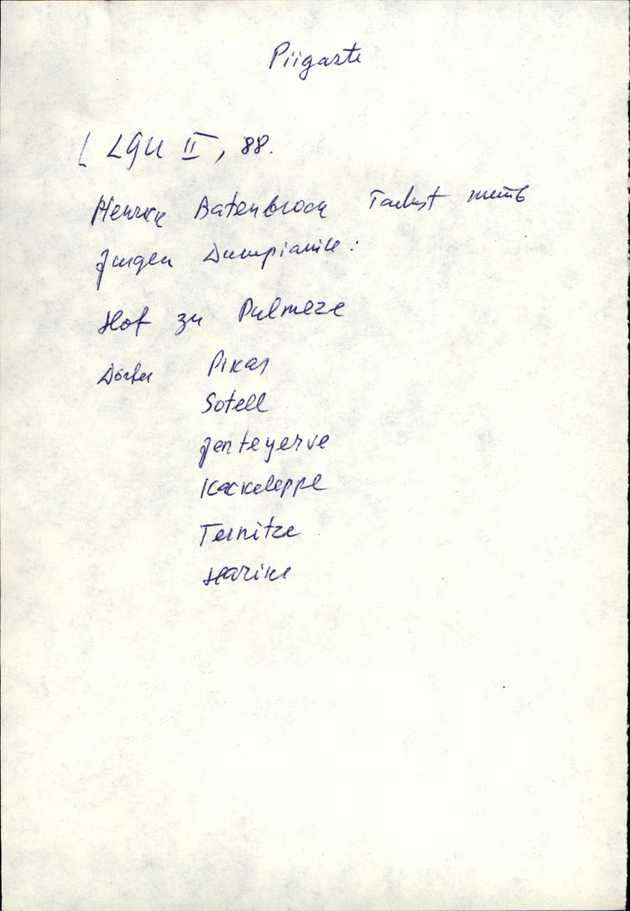 Piigaste
LGU II, 88.
Henrick Batenbrock
Jurgen
Hof zu Pulmeze
Dörfer Pikas
Sotell
Jenteyerve
Kackeleppe
Ternitze
Harike